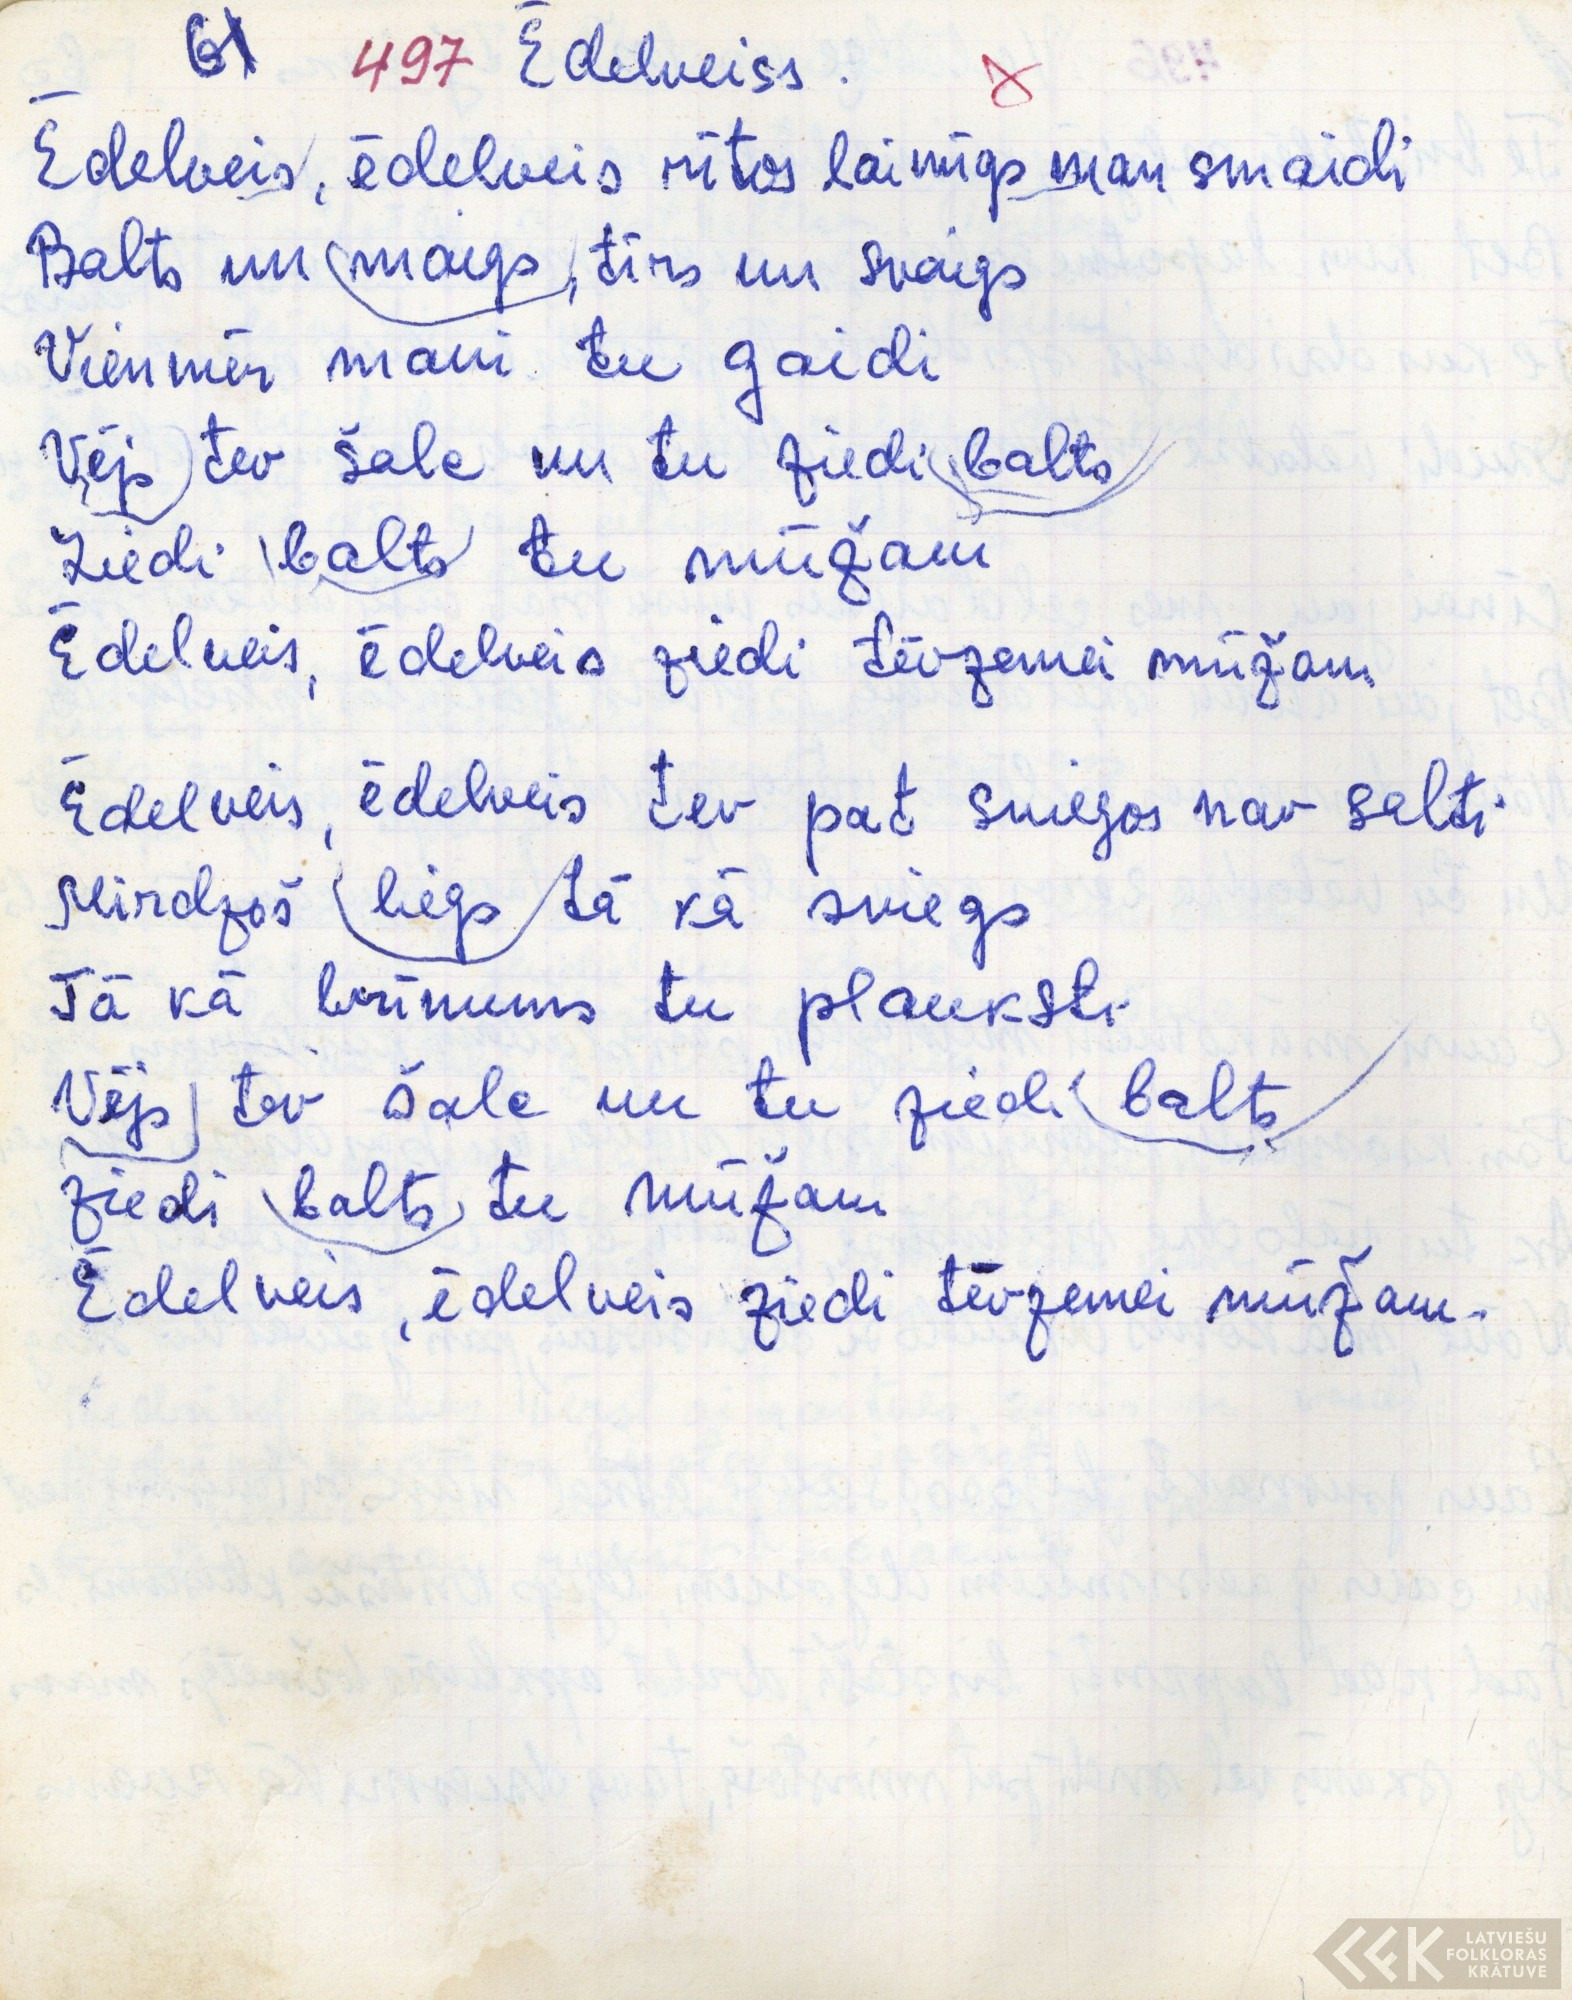 61 497 Ēdelveiss.
Ēdelveis, ēdelveis rītos laimīgs man smaidi
Balts un maigs, tīrs un svaigs
Vienmēr mani tu gaidi
Vējs tev šalc un tu ziedi balts
Ziedi balts tu mūžam
Ēdelveis, ēdelveis ziedi tēvzemei mūžam
Ēdelveis, ēdelveis tev pat sniegos nav salti
Mirdzošs liegs tā kā sniegs
Tā kā brīnums tu plauksti
Vējs tev šalc un tu ziedi balts
ziedi balts tu mūžam
Ēdelveis, ēdelveis ziedi tēvzemei mūžam.
LATVIEŠU
FOLKLORAS
KRĀTUVE